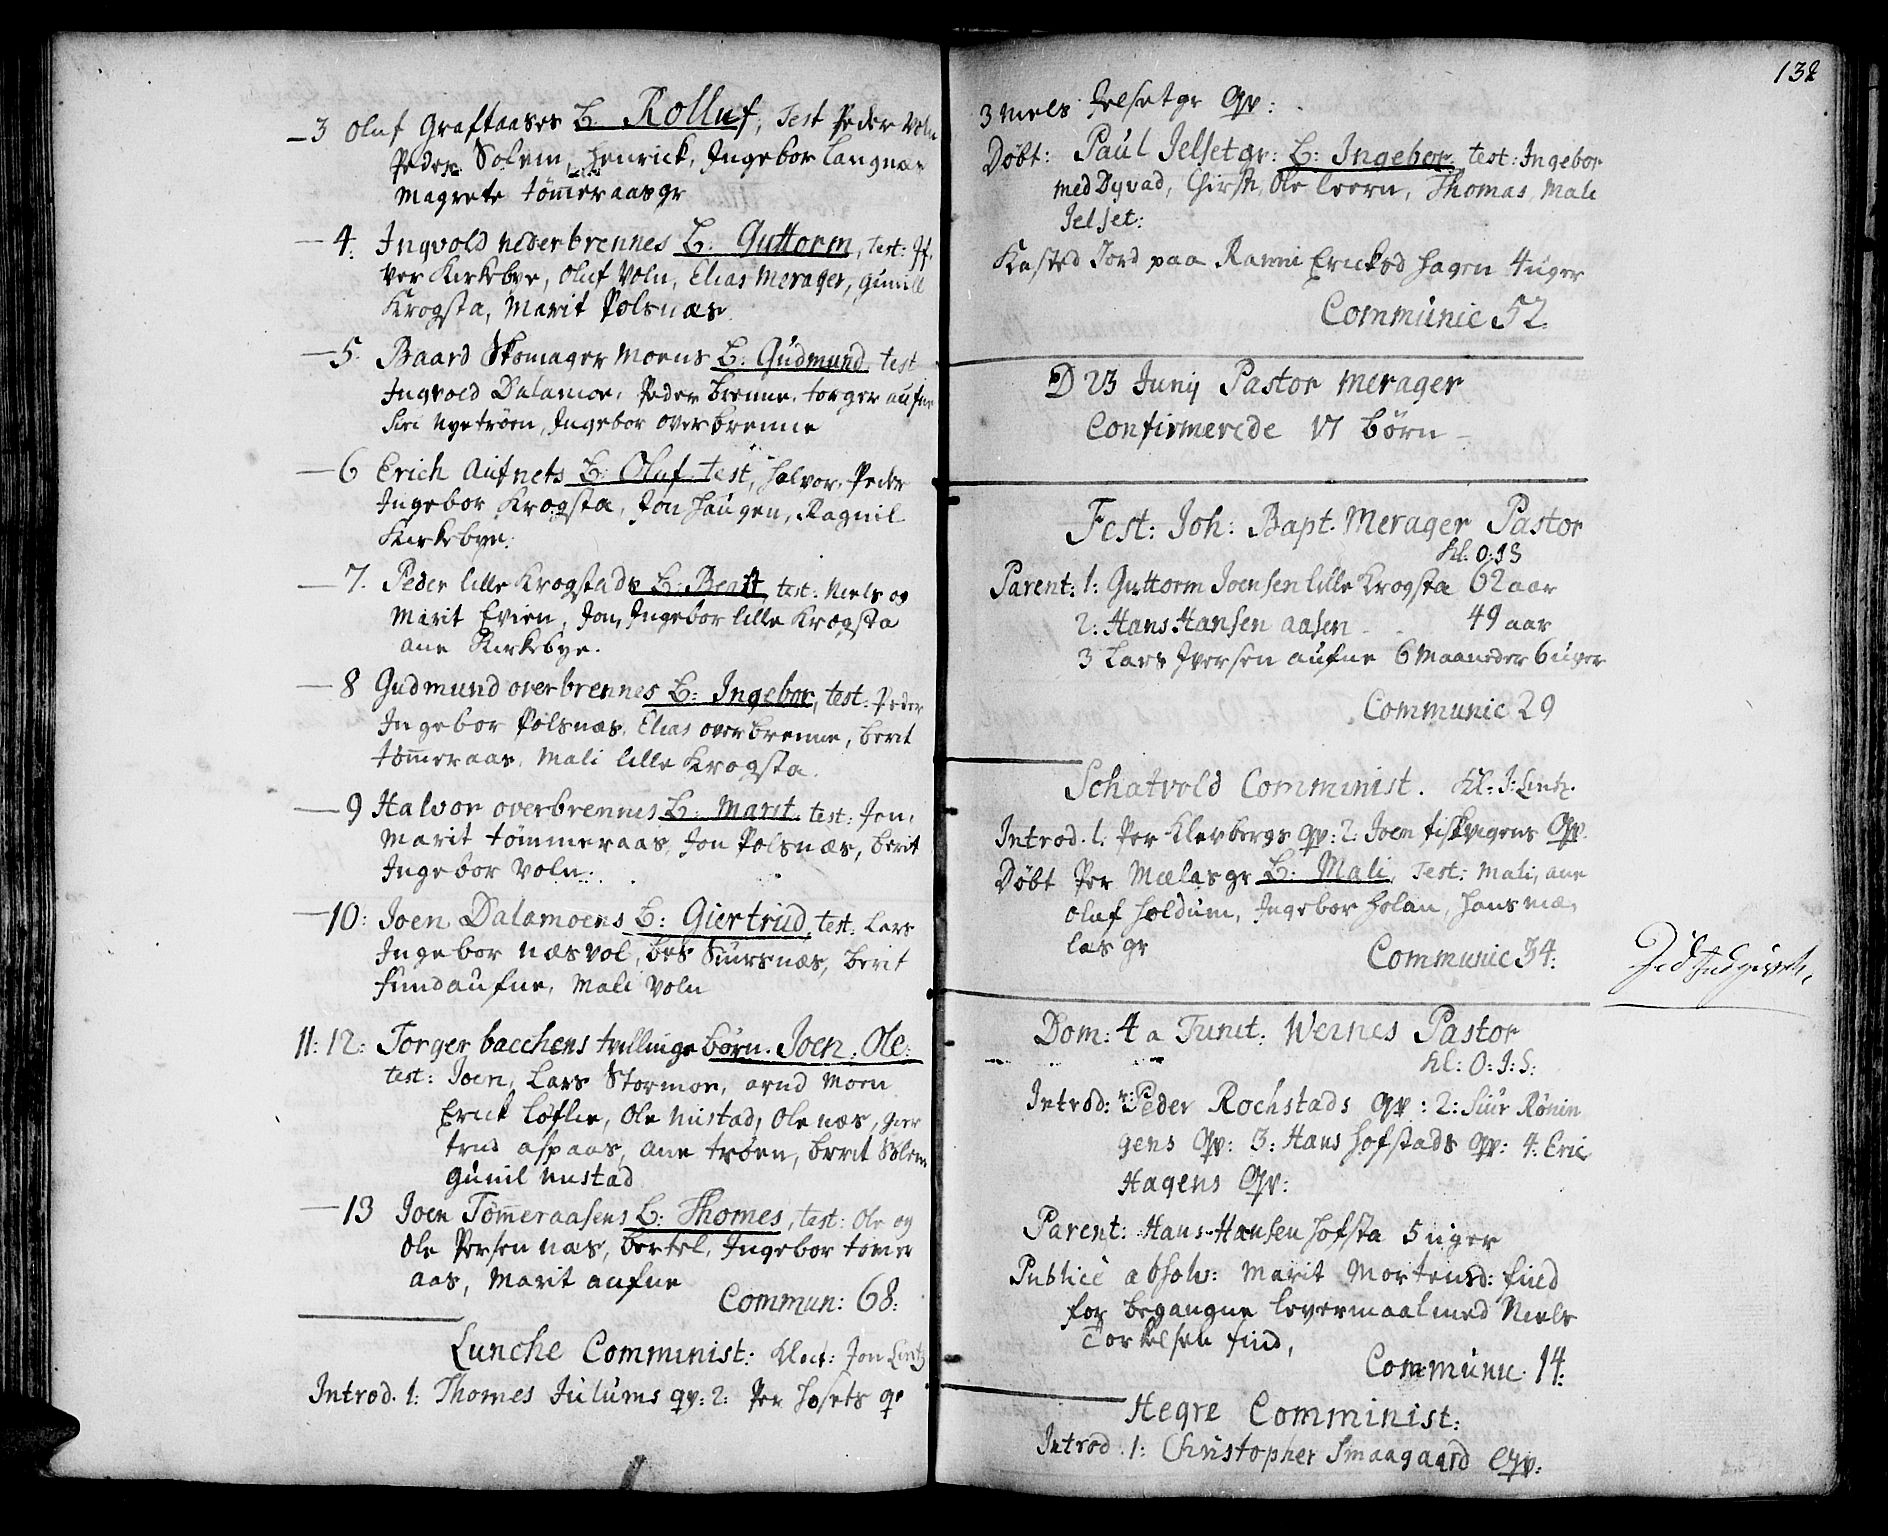 3 Oluf Graftaases B. Rolluf, Test Peder Voln
Peder Solem, Henrick, Ingebor Langnæs
Magrete tømeraasgr
4. Ingvold nederbrennes B. Guttorm, test: If,
ver Kirkebye, Oluf Voln, Elias Merager, Gunill
Krogsta, Marit Polsnæs
5. Baard Skomager Moens B. Gudmund, test
Ingvold Dalamoe, Peder brenne, torger aufne
Siri nyetrøen, Ingebor overbrenne
6 Erich Aufnets B. Oluf test, Halvor, Peder
Ingebor Krogsta, Jon Haugen, Ragnil
Kirkebye.
7. Peder lille Krogstads B. Beait, test: Niels og
Marit Evien, Jon, Ingebor lille Krogsta
ane Kirkebye.
8 Gudmund overbrennes B: Ingebor, test. Peder
Ingebor Polsnæs, Elias overbrenne, berit
tømeraas, Mali lille Krogsta.
9 Halvor overbrennes B. Marit. test: Jen,
Marit tømmeraas, Jon Polsnæs, berit
Ingebor Voln.
10: Joen Dalamoens B: Giertrud, test: Lars
Ingebor Næsvol, Siursnæs, berit
sundaufne, Mali Voln
11: 12: Torger bacchens tvillinge børn. Joen. Ole:
test: Joen, Lars Stormoe, arnd Moen
Erick Løflie, Ole Nustad, Ole næs, gier
trud aspaas, ane trøen, berit
Gunil Nustad
13 Joen Tømeraasens B: Thomes, test: Ole og
Ole Persen næs, bertel, Ingebor tømer
aas, Marit aufne
Commun: 68:
Lunche Comminist: Klock: Jon Lintz
Introd. 1: Thomes Julums qv: 2: Per Hosets qv
132
3 Niels Jelsetgr Qv:
Døbt: Paul Jelsetgr: B: Ingebor, test: Ingebor
med Dyvad, Chirstn, Ole leern, Thomas, Mali
Jelset:
Kasted Jord paa Ranni Ericksd Hagen 4 uger
Communic 52.
D 23 Junij Pastor Merager
Confirmerede 17 børn
Fest: Joh: Bapt. Merager Pastor
Kl: O: I S
Parent: 1: Guttorm Joensen lille Krogsta 62 aar
2: Hans Hansen aasen 49 aar
3 Lars Iversen aufne 6 Maaneder 6 uger
Communic 29
Schatvold Comminist. Kl: J: Lintz.
Introd. 1. Per Klevbergs qv: 2. Joen fiskvigens Qv.
Døbt Per Mælasgr B. Mali, Test: Mali, ane
Oluf Holdum, Ingebor Holan, Hans mæ,
las gr
Communic 34:
Dom: 4 a Trinit: Wernes Pastor
Kl: O: I: S:
Introd: 1: Peder Rochstads qv: 2: Siur Rønin
gens Qv: 3: Hans Hofstads qv: 4: Eric
Hagens Qv:
Parent: Hans Hansen Hofsta 5 uger
Publicè absolv: Marit Mortensd: fied
for begangne levermaal med Niels
Torkelsen fied,
Communic 14:
Hegre Comminist:
Introd. 1: Christopher Smaagaard Qv: